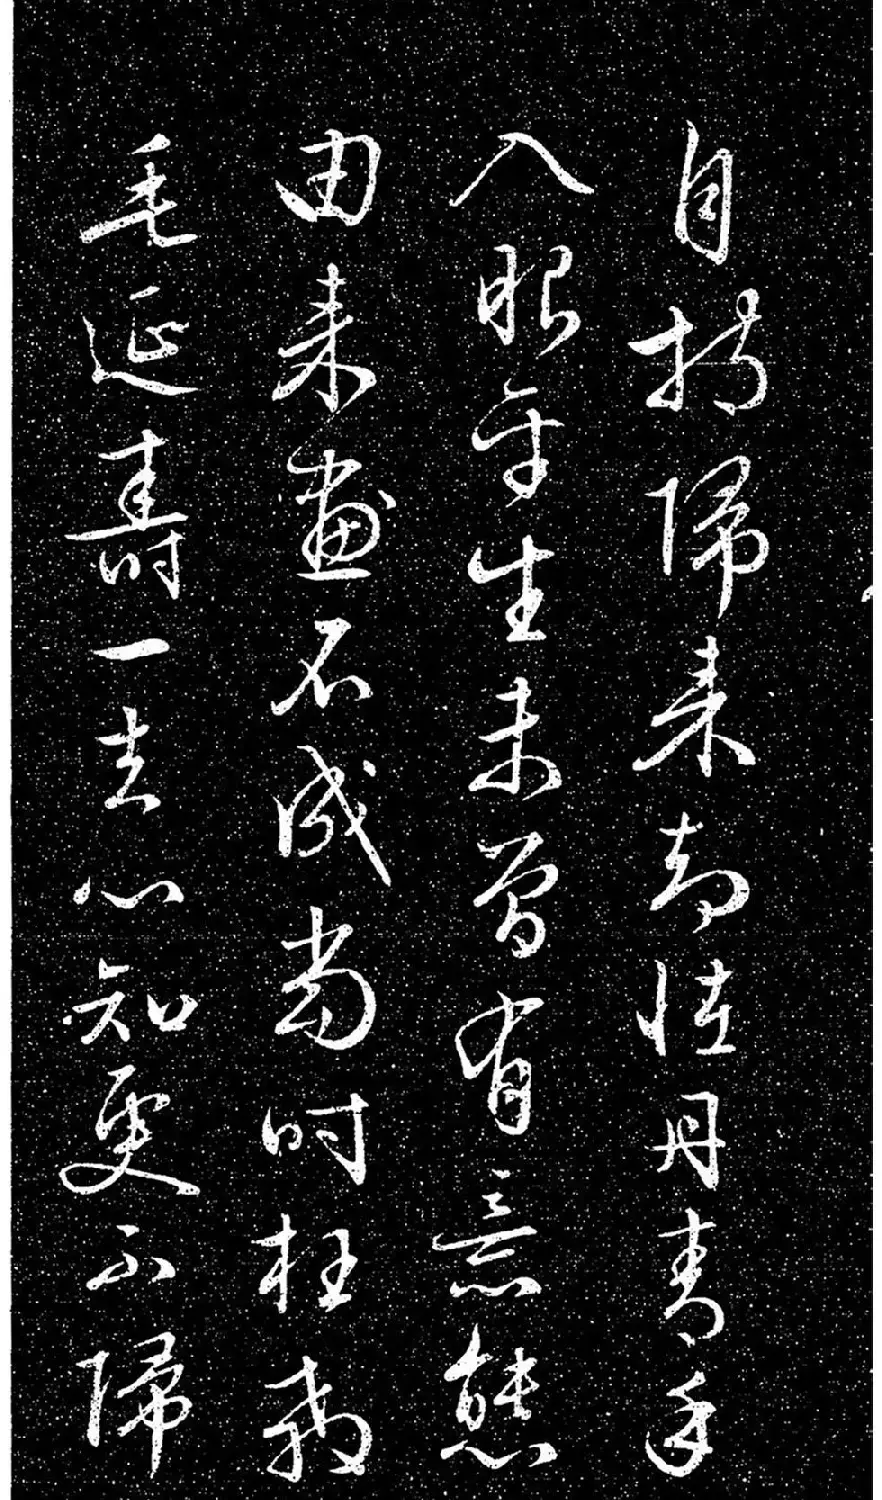 自持歸来却怪丹青手
入眼平生未曾有意態
由来畫不成當時枉殺
毛延壽一去心知更不歸